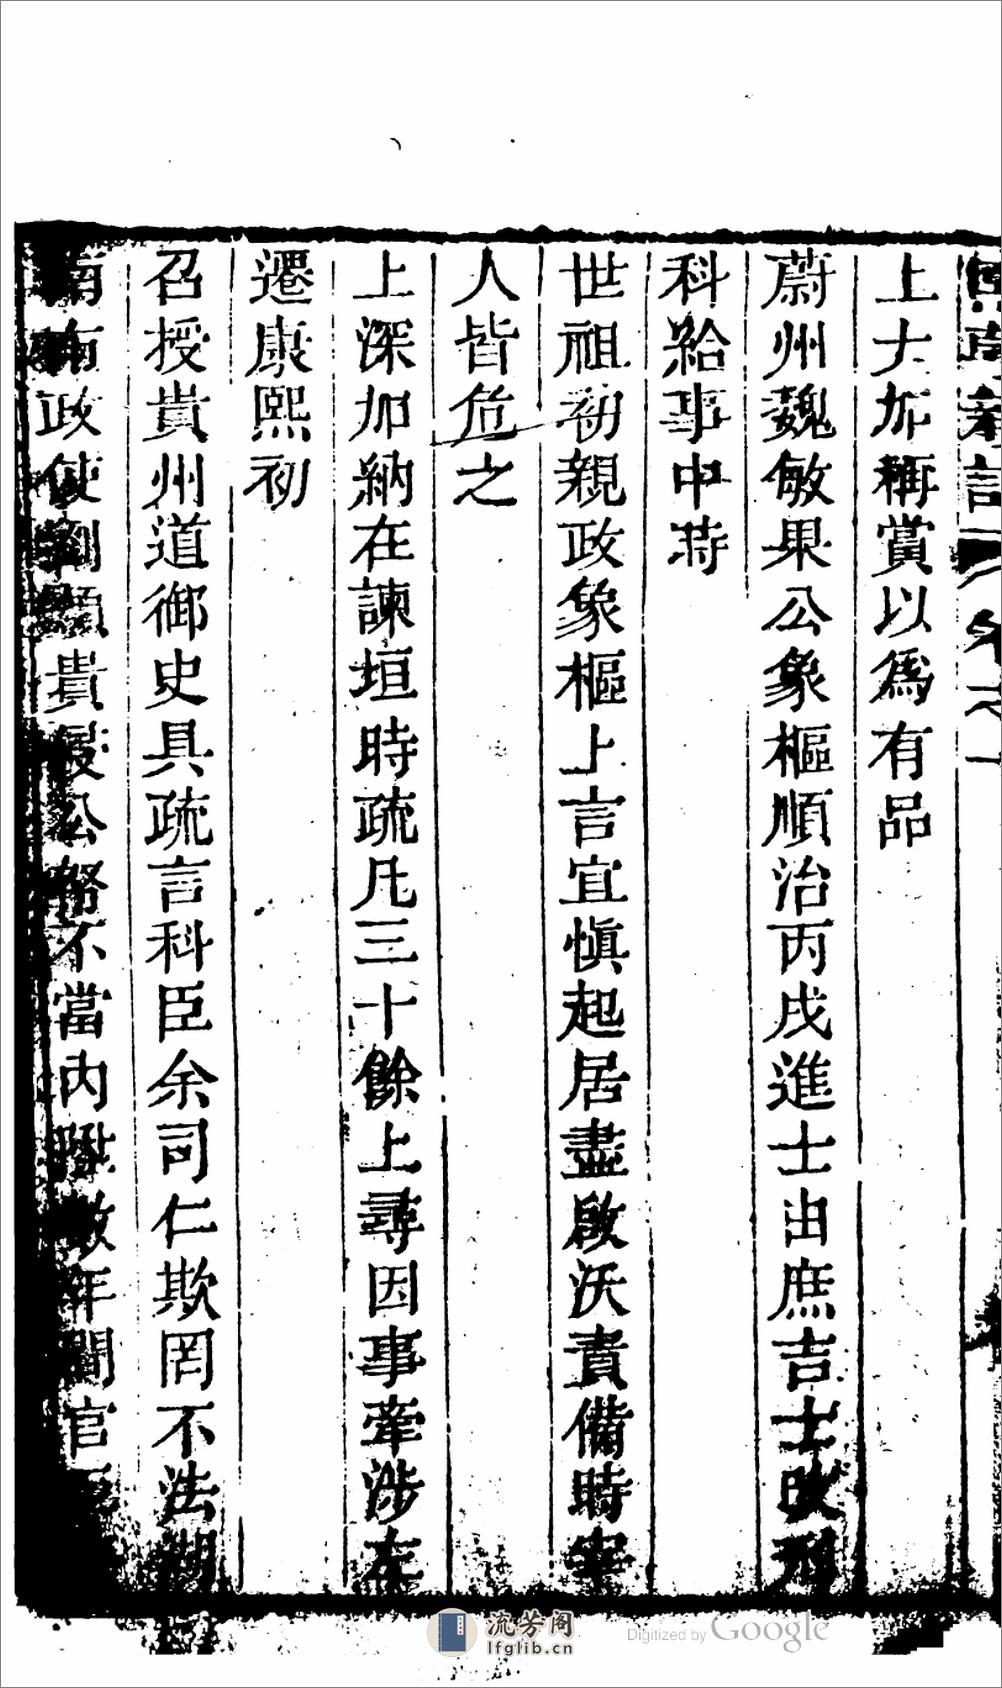 上大加稱賞以爲有品
蔚州魏敏果公象樞順治丙戌進士由庶吉士改刑
科給事中時
世祖初親政象樞上言宜慎起居盡啟沃責備時宰
人皆危之
上深加納在諫垣時疏凡三十餘上尋因事牽涉左
遷康熙初
召授貴州道御史具疏言科臣余司仁欺罔不法湖
南布政使劉顯貴侵公帑不當内陞數年間官
流芳阁
lfglib.cn
Digitized by Google